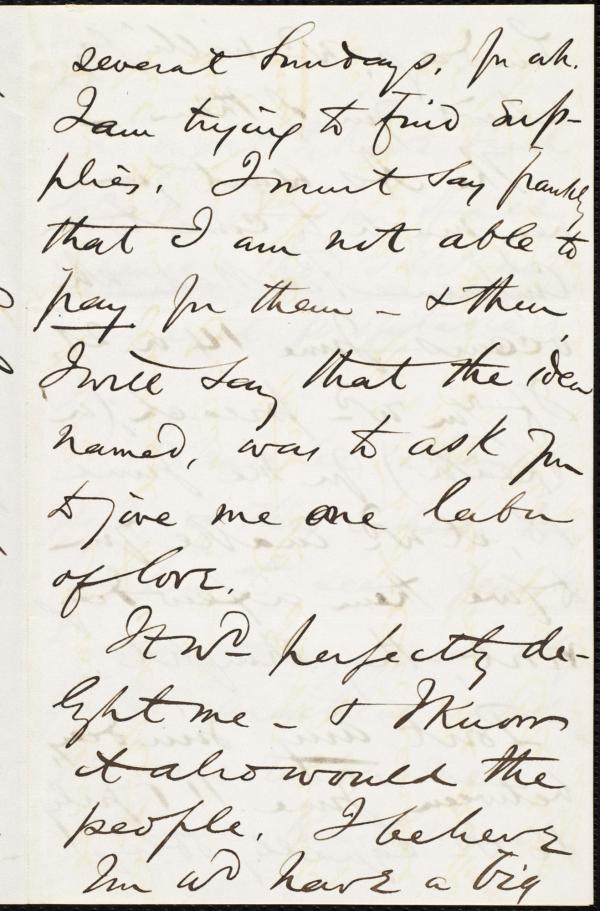 several Sundays, for wh.
I am trying to find sup-
plies. I must say frankly
that I am not able to
pay for them - & then
I will say that the idea
named, was to ask you
to give me one labor
of love.
It wd perfectly de-
light me - & I know
it also would the
people. I believe
you wd have a big